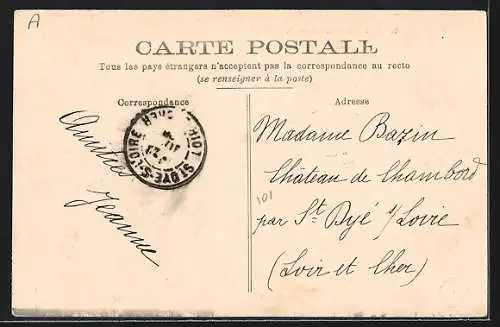 A
CARTE POSTALE
Tous les pays étrangers n'acceptent pas la correspondance au recto
(se renseigner à la poste)
Correspondance
Adresse
Amitiés
Jeanne
ST DYE-S-LOIRE
Madame Bazin
Château de Chambord
101
par St. Dyé s/Loire
(Loir et Cher)